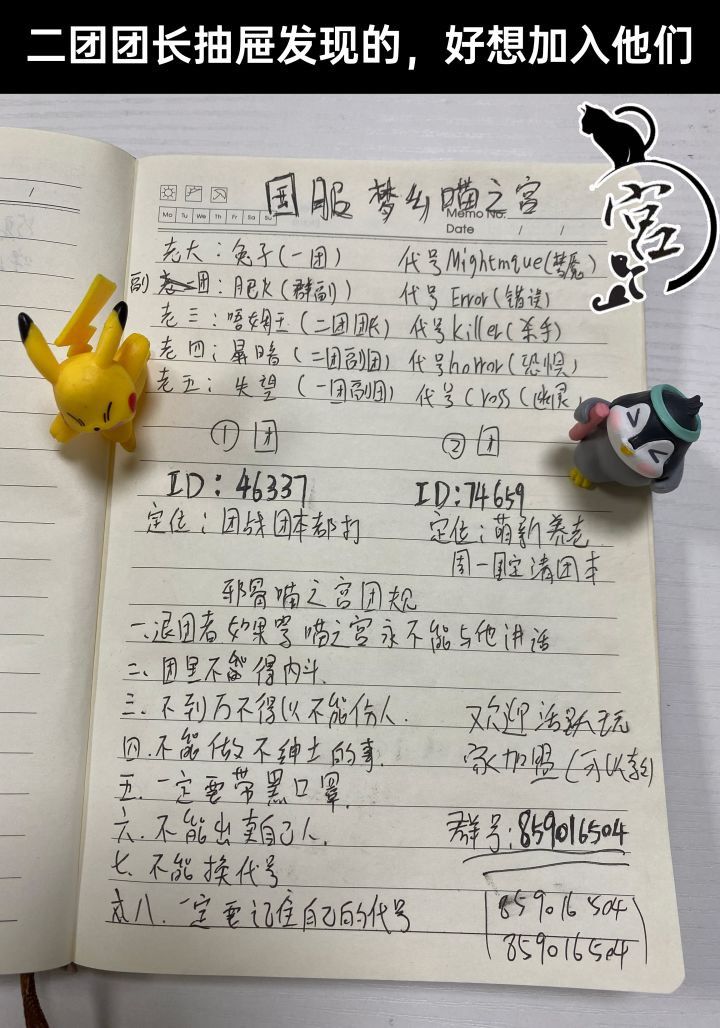 二团团长抽屉发现的，好想加入他们
宫
国服梦乡喵之宫
Mo Tu We Th Fr Sa Su
Memo No.
Date / /
老大：兔子（一团） 代号Mightmque(梦魇)
副团：肥火（群副） 代号 Error(错误)
老三：唔嫡王（二团团长） 代号killer(杀手)
老四：屏暗（二团副团） 代号horror(恐惧)
老五：失望（一团副团） 代号Cross（幽灵）
①团 ②团
ID：46337 ID:74659
定位：团战团本都打 定位：萌新养老
周一固定清团本
邪骨喵之宫团规
一、退团者如果骂喵之宫永不能与他讲话
二、团里不能得内斗.
三、不到万不得以不能伤人.
四.不能做不绅士的事.
五、一定要带黑口罩.
六、不能出卖自己人.
七、不能换代号
八、一定要记住自己的代号
欢迎活跃玩
家加盟
群号:859016504
859016504
859016504